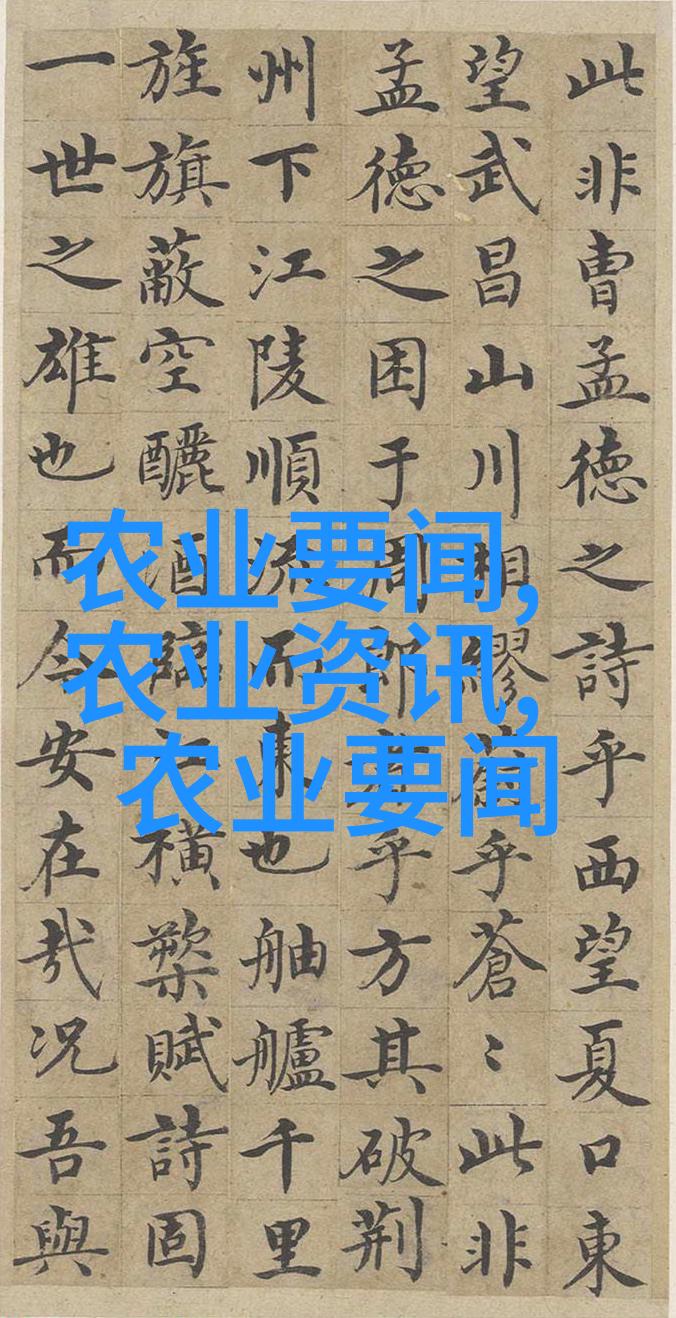 此非曹孟德之詩乎西望夏口東
望武昌山川相繆乎蒼〻此非
孟德之困于周郎者乎方其破荊
州下江陵順流而東也舳艫千里
旌旗蔽空釃酒臨江橫槊賦詩固
一世之雄也而今安在哉况吾與
农业要闻,
农业资讯,
农业要闻